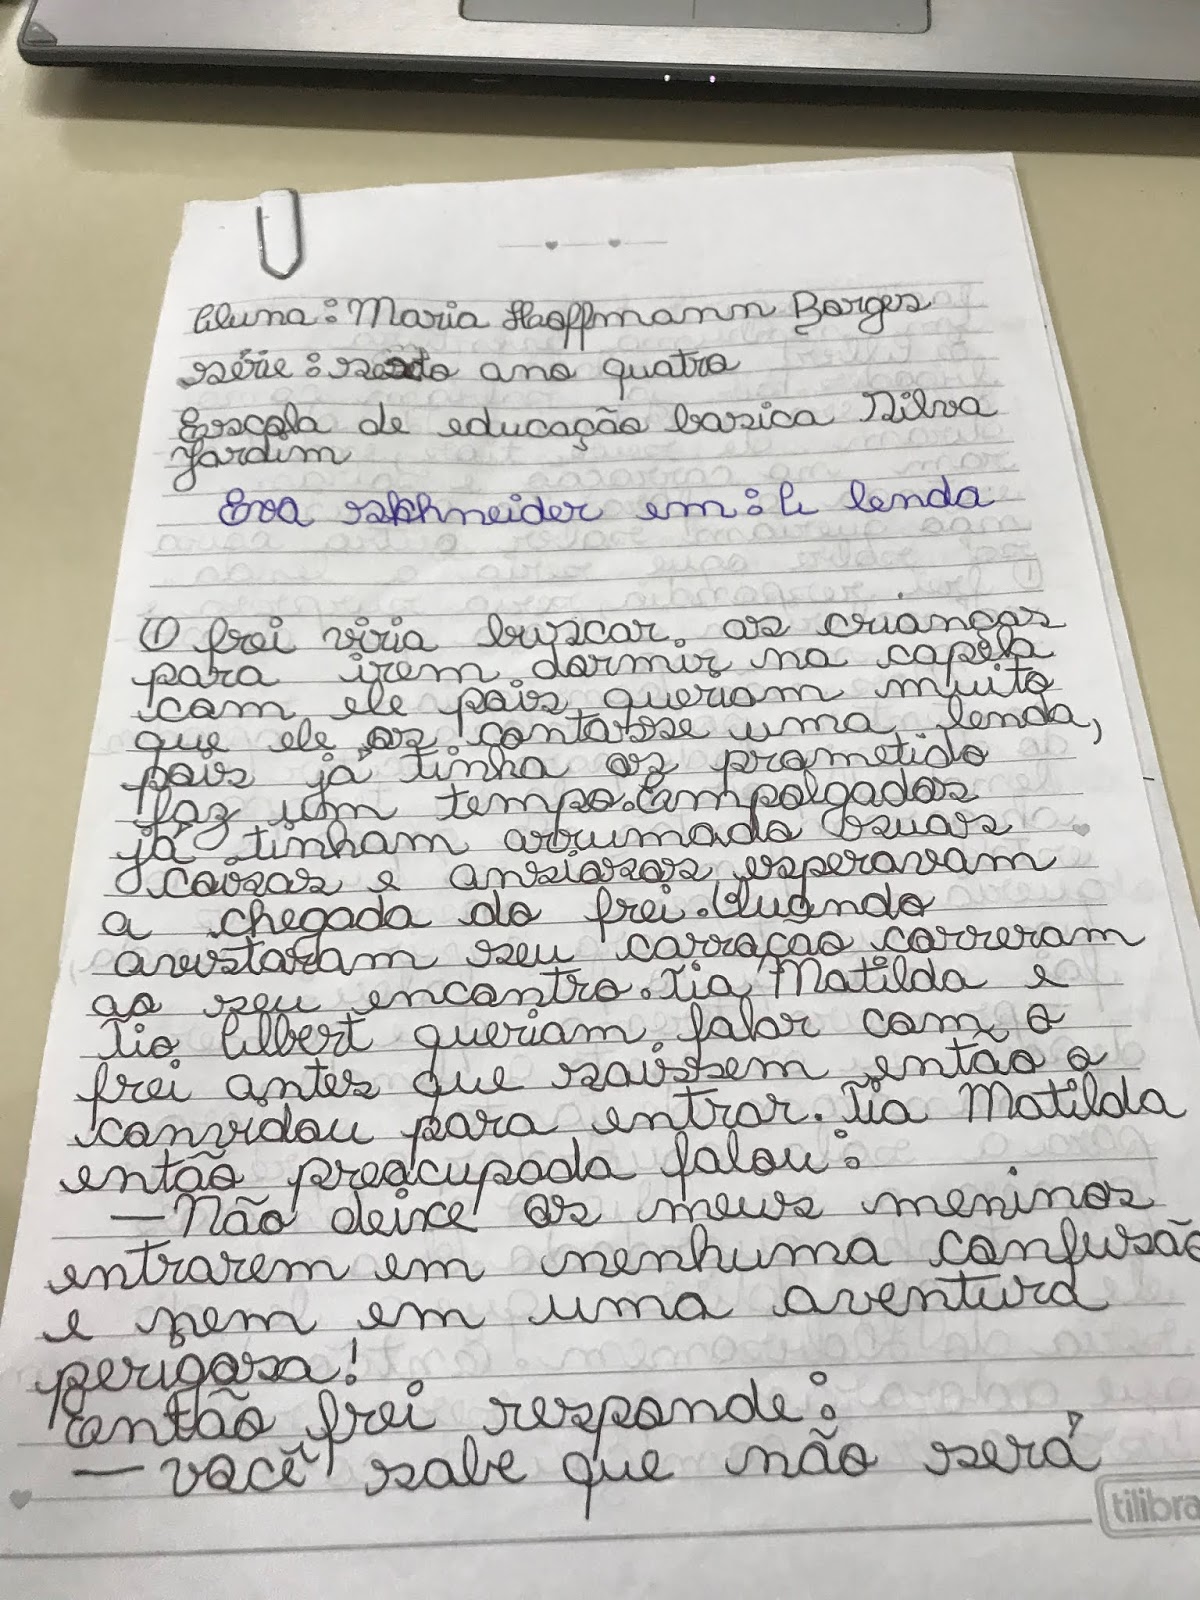 Aluna: Maria Haoffmann Borges
série: sexto ano quatro
Escola de educação basica Silva
Jardim
Eva skhneider em: A lenda
O frei viria buscar as crianças
para irem dormir na capela
com ele pois queriam muito
que ele os contasse uma lenda,
pois já tinha os prometido
faz um tempo. Empolgados
já tinham arrumado suas
coisas e ansiosos esperavam
a chegada do frei. Quando
avistaram seu carroção correram
ao seu encontro. Tia Matilda e
Tio Albert queriam falar com o
frei antes que saissem então o
convidou para entrar. Tia Matilda
então preocupada falou:
— Não deixe os meus meninos
entrarem em nenhuma confusão
e nem em uma aventura
perigosa!
Então frei responde:
— você sabe que não será
tilibra